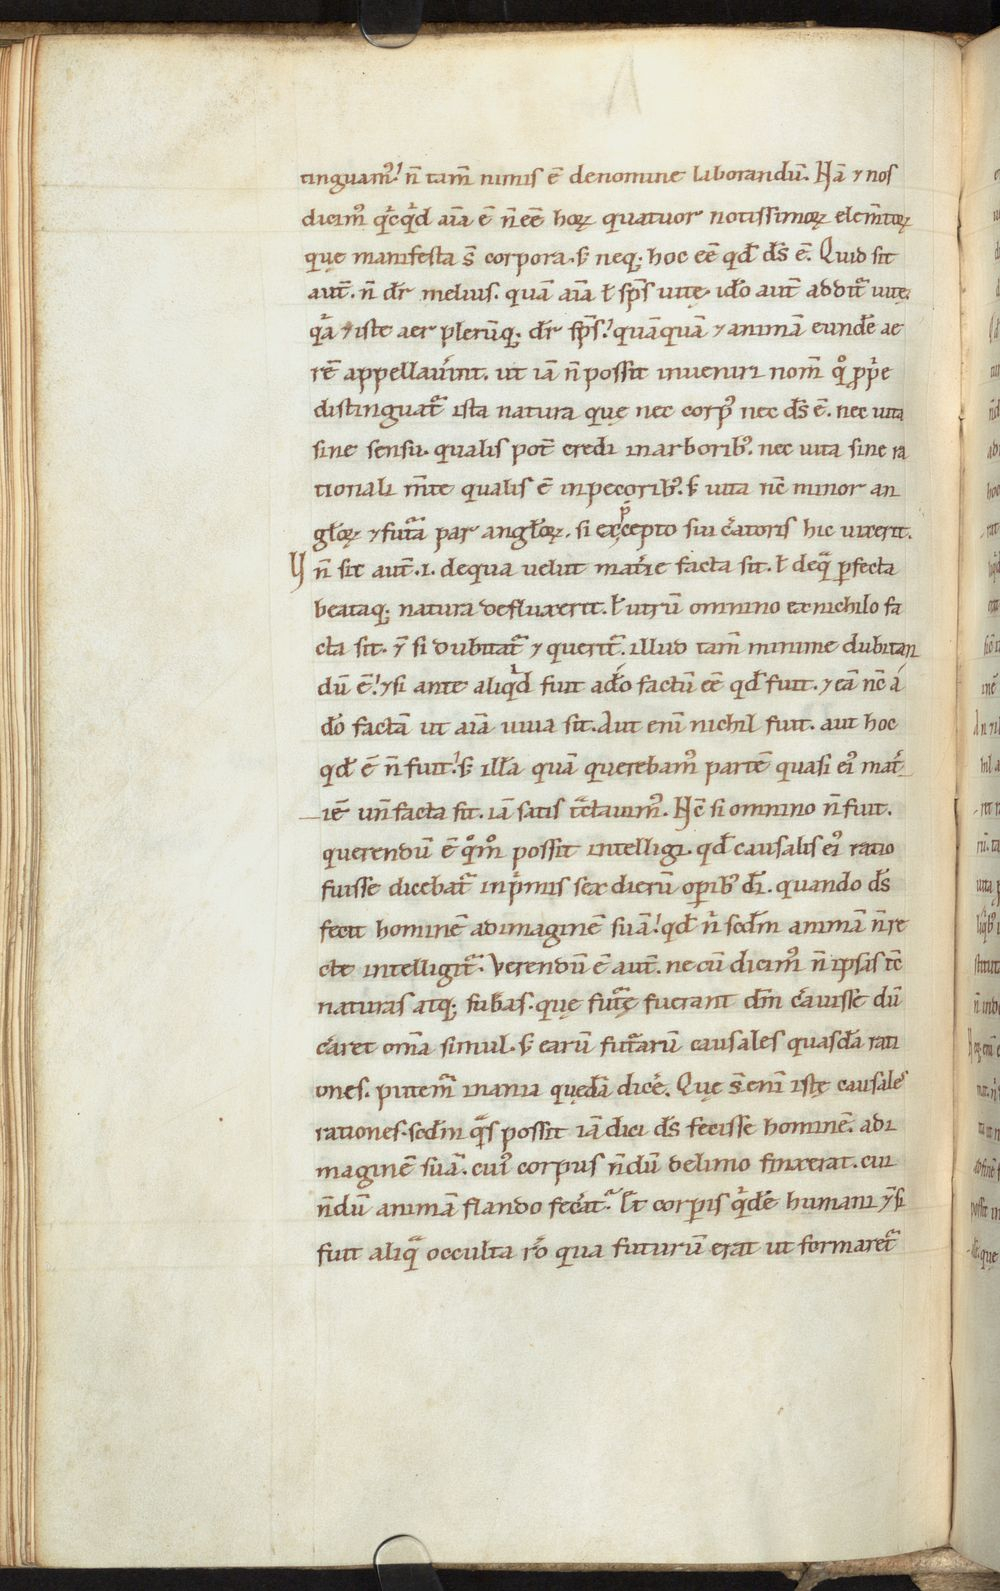 tinguam᷒. n̄ tam̄ nimis ē denomine liborandū. Nā ⁊ nos
dicim᷒ qͥcqͥd aīa ē n̄ eē hoꝝ quatuor notissimoꝝ elem̄toꝝ
quę manifesta s̄ corpora. s; neq; hoc eē qđ ds̄ ē. Quid sit
aut̄. n̄ dr̄ melius. quā aīa ł sp̄s uitę. iđo aut̄ addit᷑ uitę.
qͥa ⁊ iste aer plerūq; dr̄ sp̄s. quāquā ⁊ animā eundē ae
rē appellauer̄int. ut iā n̄ possit inueniri nom̄ qͦ ꝓpͥe
distinguat᷑ ista natura quę nec corp᷒ nec ds̄ ē. nec uita
sine sensu. qualis pot̄ credi inarborib᷒. nec uita sine ra
tionali m̄te qualis ē inpecorib᷒. s; uita nc̄ minor an
gl̄oꝝ ⁊ futᷓa par angl̄oꝝ. si ex p̄cepto sui cᷓatoris hic uixerit.
N̄ sit aut̄ .i. dequa uelut mat̄ie facta sit. ł deqᷓ ꝑfecta
beataq; natura defluxerit. ł utrū omnino exnichilo fa
cta sit. ⁊̄ si dubitat᷑ ⁊ querit᷑. illud tam̄ minime dubitan
dū ē. ⁊ si ante aliqͥd fuit a dō factū eē qđ fuit. ⁊ eā nc̄ á
dō factā ut aīa uiua sit. Aut enī nichil fuit. aut hoc
qđ ē n̄ fuit. s; illā quā querebam᷒ partē quasi ei᷒ mat̄
iē un̄ facta sit. iā satis tᷓctauim᷒. Nc̄ si omnino n̄ fuit.
querendū ē qͦm᷒ possit intelligi. qđ causalis ei᷒ ratio
fuisse dicebat᷑ inpͥmis sex dierū oꝑib᷒ dī. quando ds̄
fecit hominē adimaginē suā. qđ n̄ scđm animā n̄ re
cte intelligit᷑. Verendū ē aut̄. ne cū dicim᷒ n̄ ipsas tc̄
naturas atq; sub̄as. quę futᷓę fuerant dm̄ cᷓauisse dū
cᷓaret omīa simul. s; earū futᷓarū causales quasdā rati
ones. putem᷑ inania quędā dicē. Quę s̄ enī istę causales
rationes. scđm qᷓs possit iā dici ds̄ fecisse hominē. adi
maginē suā. cui᷒ corpus n̄dū delimo finxerat. cui
n̄dū animā flando fecᷓat. Et corꝑis qͥdē humani ⁊̄ si
fuit aliqᷓ occulta rō qua futurū erat ut formaret᷑